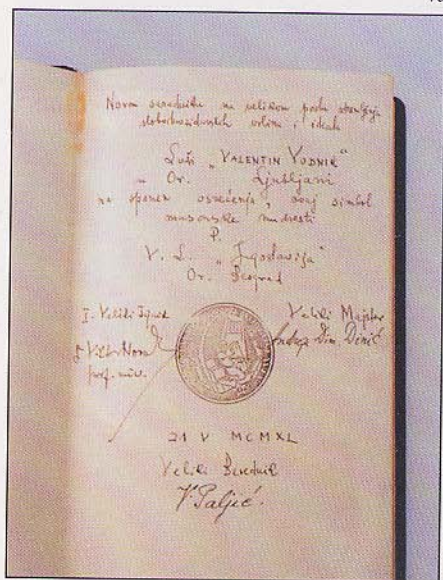 Novom saradniku na velikom poslu stvaranja
slobodnozidarskih vrlina i ideala
Loži „VALENTIN VODNIK"
u Or. Ljubljani
na spomen osvećenja, ovaj simbol
masonske mudrosti
P.
V. L. „Jugoslavija"
Or. Beograd
I. Veliki
Veliki Majstor
Viktor Novak
Andra Dim. Dinić
prof. univ.
21 V MCMXL
Veliki Besednik
V. Paljić.